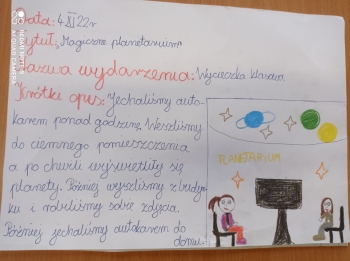 Data: 4 XI 22r
Tytuł: Magiczne planetarium
Nazwa wydarzenia: Wycieczka klasowa
Krótki opis: Jechaliśmy auto-
karem ponad godzinę. Weszliśmy
do ciemnego pomieszczenia
a po chwili wyświetliły się
planety. Później wyszliśmy z budyn-
ku i robiliśmy sobie zdjęcia.
Później jechaliśmy autokarem do
domu.
PLANETARIUM